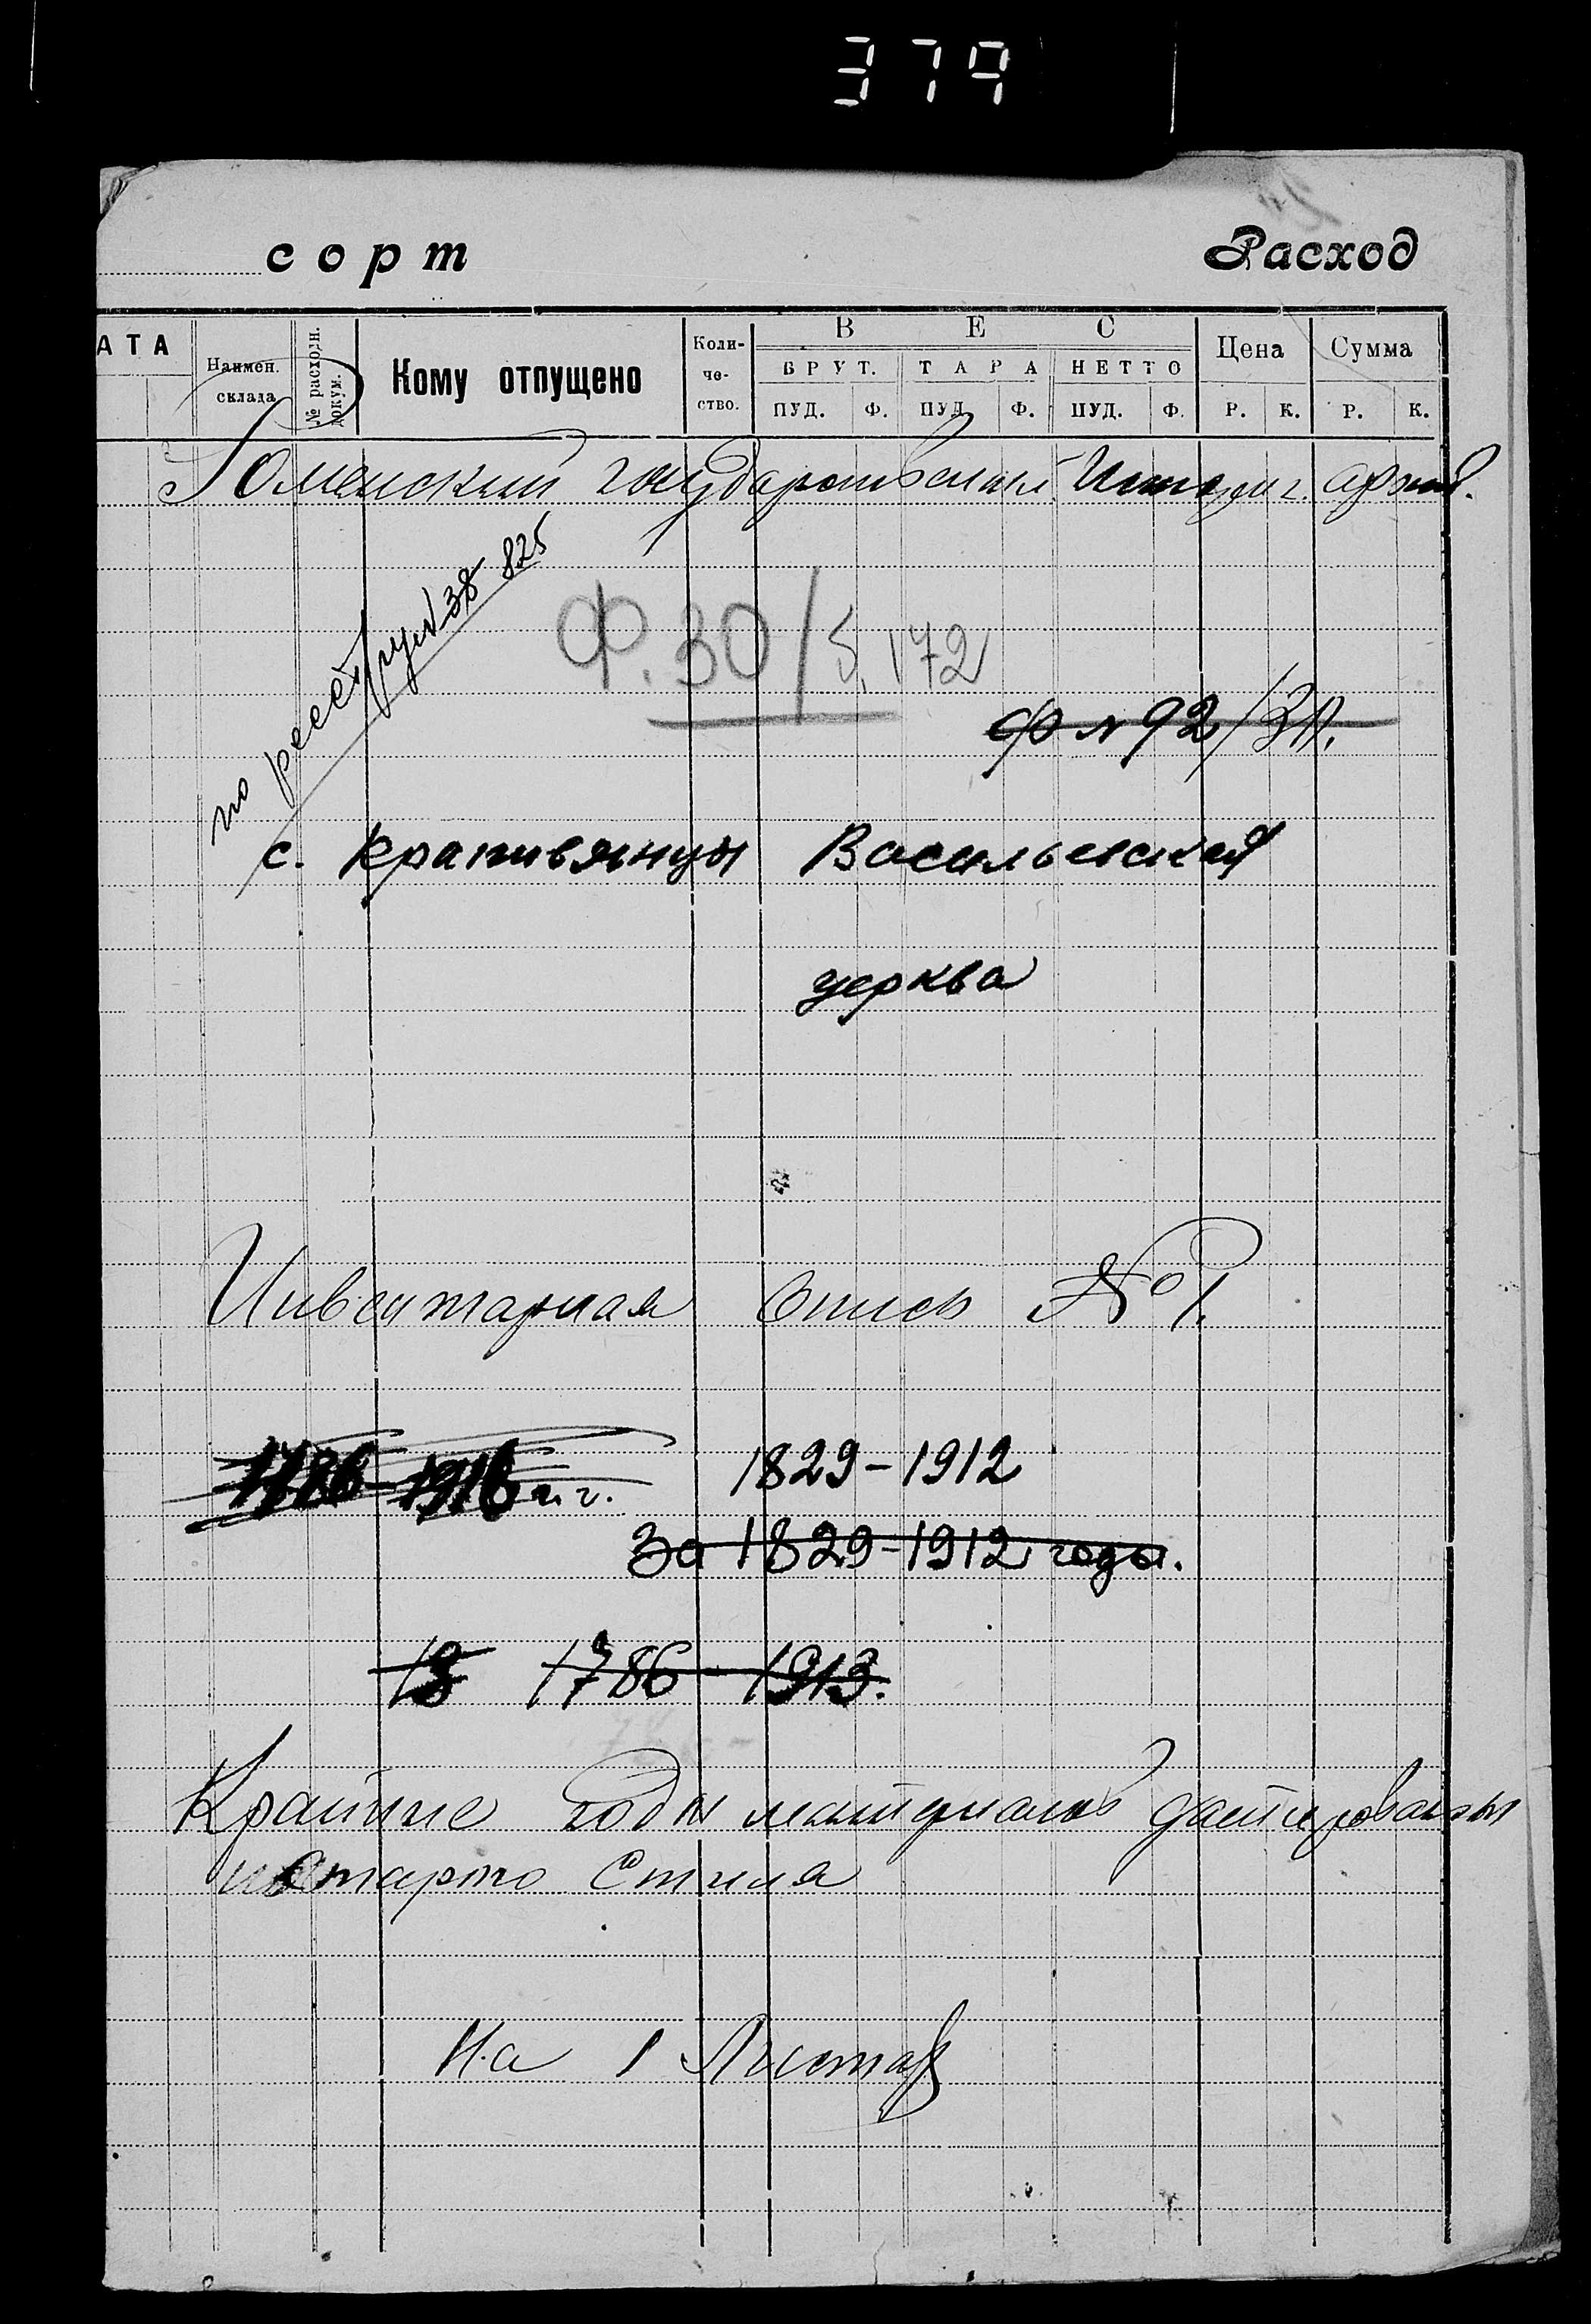 379
сорт Расход
АТА Наимен. склада № расходн. докум. Кому отпущено Коли-че-ство. ВЕС БРУТ. ТАРА НЕТТО Цена Сумма
ПУД. Ф. ПУД. Ф. ПУД. Ф. Р. К. Р. К.
Роменский государственный Историч. архив.
по реестру № 38 825
Ф. 30/5.172
ф № 92/ЗП.
с. Крапивянцы Васильевская
церква
Инвентарная Опись № 1.
1786-1916 г.г. 1829-1912
За 1829-1912 годы.
18 1786-1913.
Крайние годы материалов датированы
по старого стиля
На 1 Листах